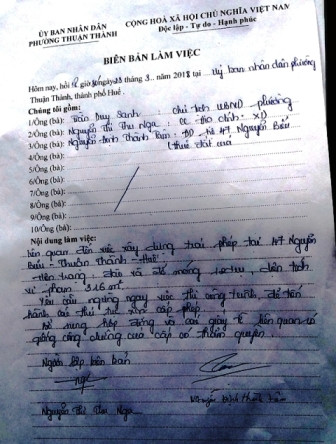 ỦY BAN NHÂN DÂN
PHƯỜNG THUẬN THÀNH
CỘNG HOÀ XÃ HỘI CHỦ NGHĨA VIỆT NAM
Độc lập - Tự do - Hạnh phúc
BIÊN BẢN LÀM VIỆC
Hôm nay, hồi giờ ngày 23 tháng 3 năm 2018 tại uỷ ban nhân dân phường
Thuận Thành, thành phố Huế.
Chúng tôi gồm:
1/Ông (bà): Trần Duy Sanh chủ tịch UBND phường
2/Ông (bà): Nguyễn Thị Thu Nga: CC địa chính - XD
3/Ông (bà): Nguyễn Đình Thành 47 Nguyễn Biểu
4/Ông (bà): (thuế đất
5/Ông (bà):
6/Ông (bà):
7/Ông (bà):
8/Ông (bà):
9/Ông (bà):
10/Ông (bà):
Nội dung làm việc:
liên quan đến việc xây dựng trái phép tại 47 Nguyễn
Biểu - Thuận Thành - Huế.
Hiện trạng: đào và đổ móng, diện tích
vi phạm:
Yêu cầu ngừng ngay việc thi công trình, để tiến
hành lại thủ tục xin cấp phép.
Bổ sung hợp đồng và các giấy tờ liên quan có
công chứng của cấp có thẩm quyền.
Người lập biên bản
Nguyễn Thị Thu Nga
Nguyễn Đình Thành